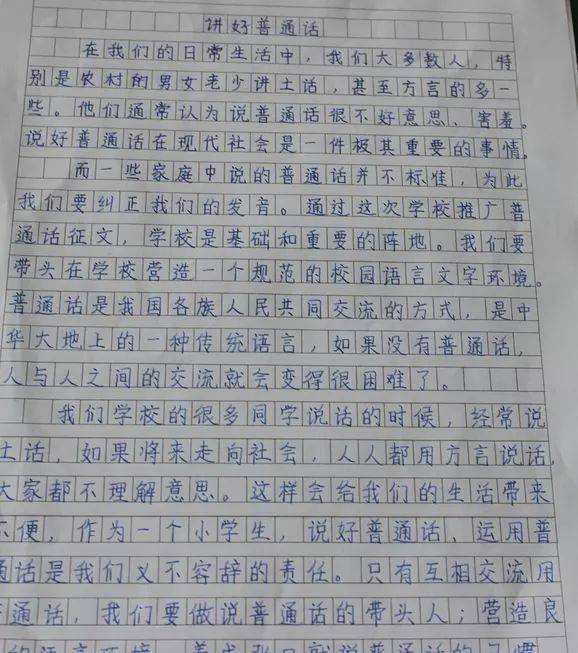 讲好普通话
在我们的日常生活中，我们大多数人，特
别是农村的男女老少讲土话，甚至方言的多一
些。他们通常认为说普通话很不好意思、害羞。
说好普通话在现代社会是一件极其重要的事情。
而一些家庭中说的普通话并不标准，为此
我们要纠正我们的发音。通过这次学校推广普
通话征文，学校是基础和重要的阵地。我们要
带头在学校营造一个规范的校园语言文字环境。
普通话是我国各族人民共同交流的方式，是中
华大地上的一种传统语言，如果没有普通话，
人与人之间的交流就会变得很困难了。
我们学校的很多同学说话的时候，经常说
土话，如果将来走向社会，人人都用方言说话，
大家都不理解意思。这样会给我们的生活带来
不便，作为一个小学生，说好普通话、运用普
通话是我们义不容辞的责任。只有互相交流用
通话，我们要做说普通话的带头人；营造良
的语言环境，养成张口就说普通话的习惯